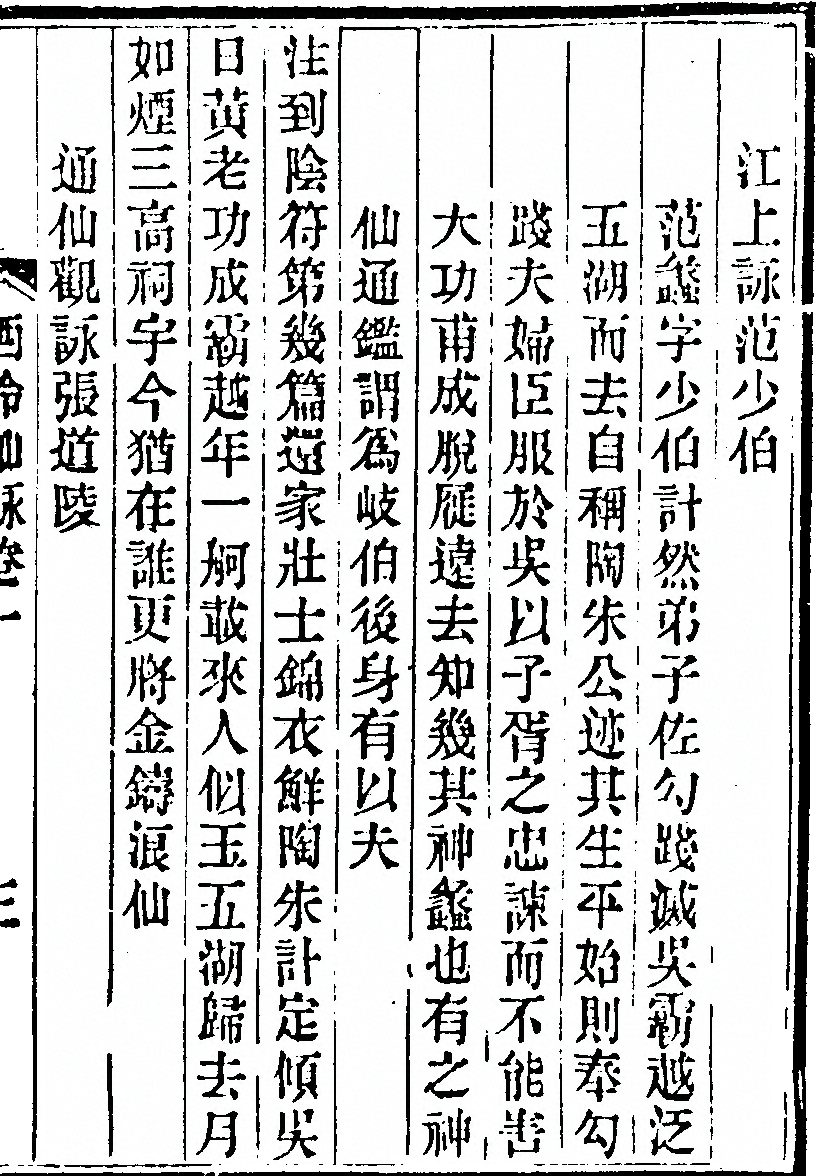 江上詠范少伯
范蠡字少伯計然弟子佐勾踐滅吳霸越泛
五湖而去自稱陶朱公迹其生平始則奉勾
踐夫婦臣服於吳以子胥之忠諫而不能害
大功甫成脫屣遠去知幾其神蠡也有之神
仙通鑑謂為岐伯後身有以夫
注到陰符第幾篇還家壯士錦衣鮮陶朱計定傾吳
日黃老功成霸越年一舸載來人似玉五湖歸去月
如煙三高祠宇今猶在誰更將金鑄浪仙
通仙觀詠張道陵
西泠仙詠卷一
三